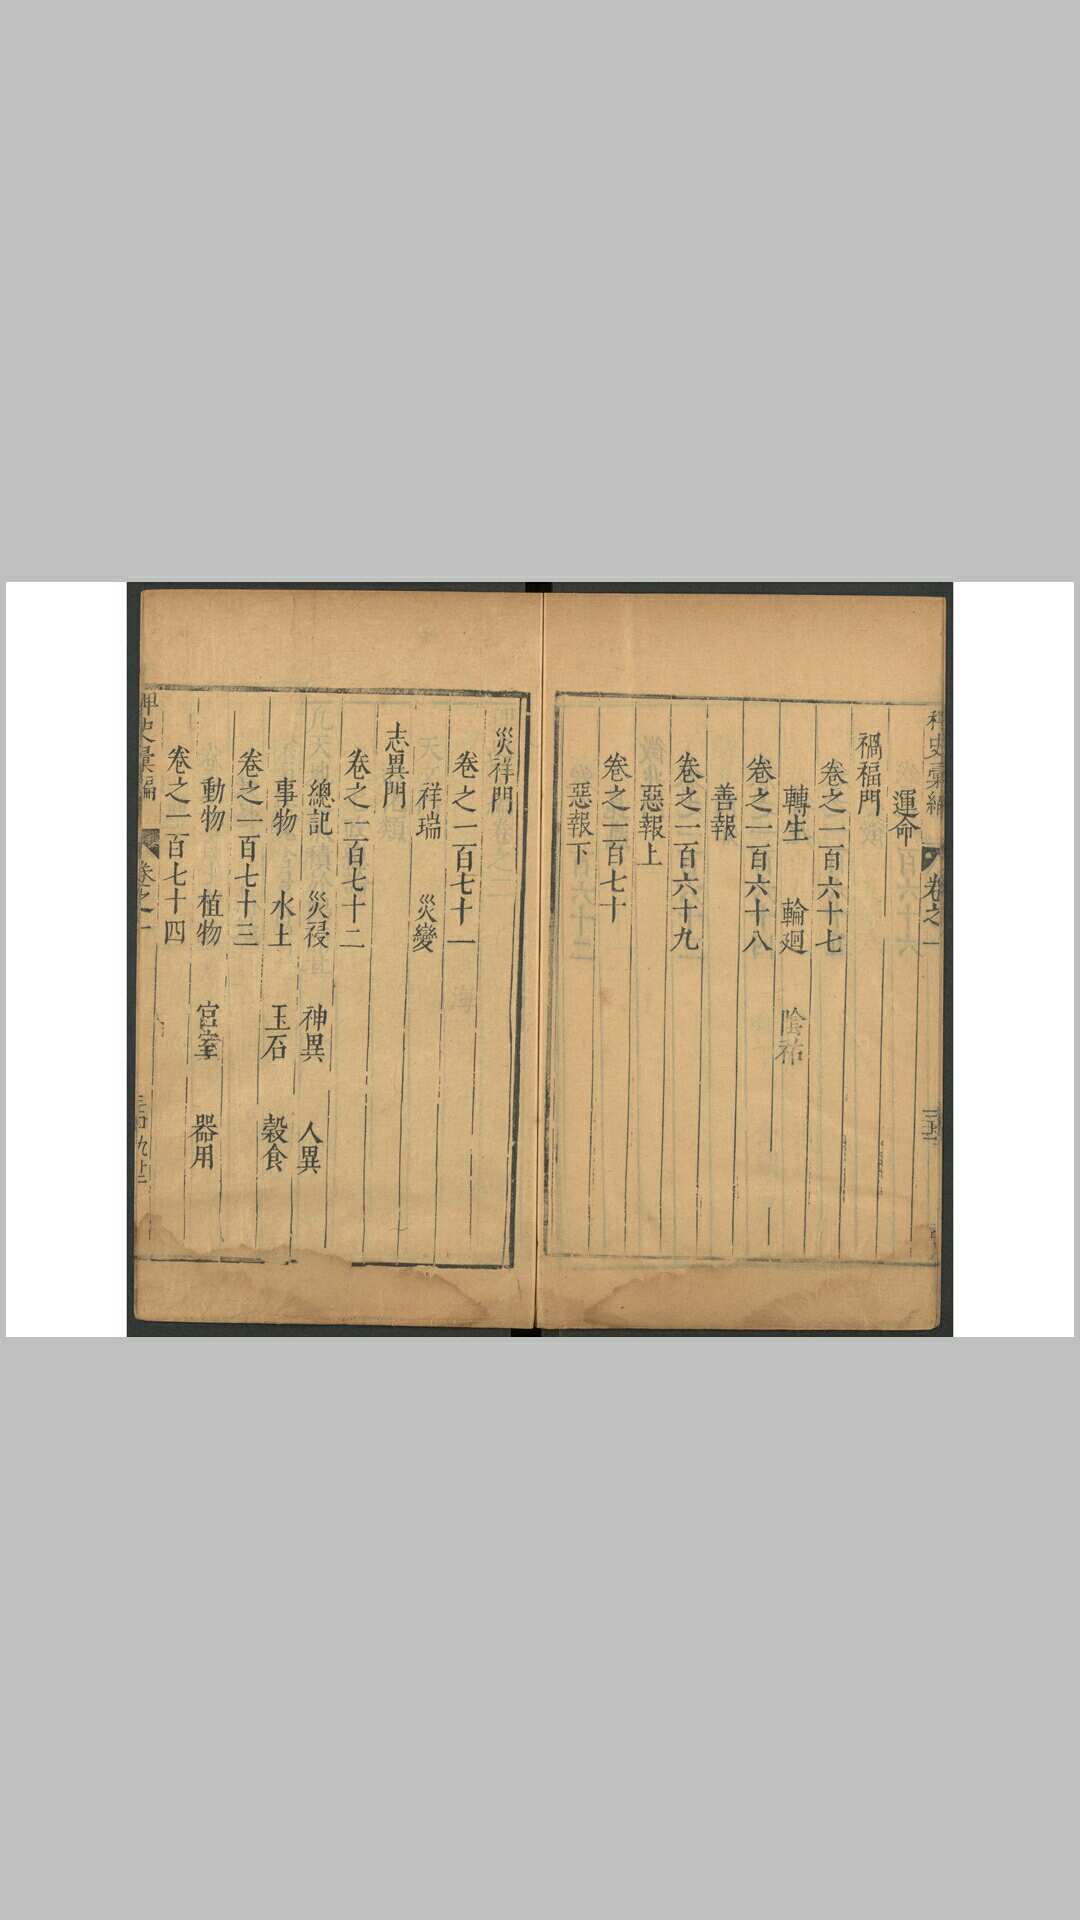 稗史彙編 卷之一
運命
禍福門
卷之一百六十七
轉生 輪廻 陰祐
卷之一百六十八
善報
卷之一百六十九
惡報上
卷之一百七十
惡報下
災祥門
卷之一百七十一
祥瑞 災變
志異門
卷之一百七十二
總記 災祲 神異 人異
事物 水土 玉石 穀食
卷之一百七十三
動物 植物 宮室 器用
卷之一百七十四
稗史彙編 卷之一